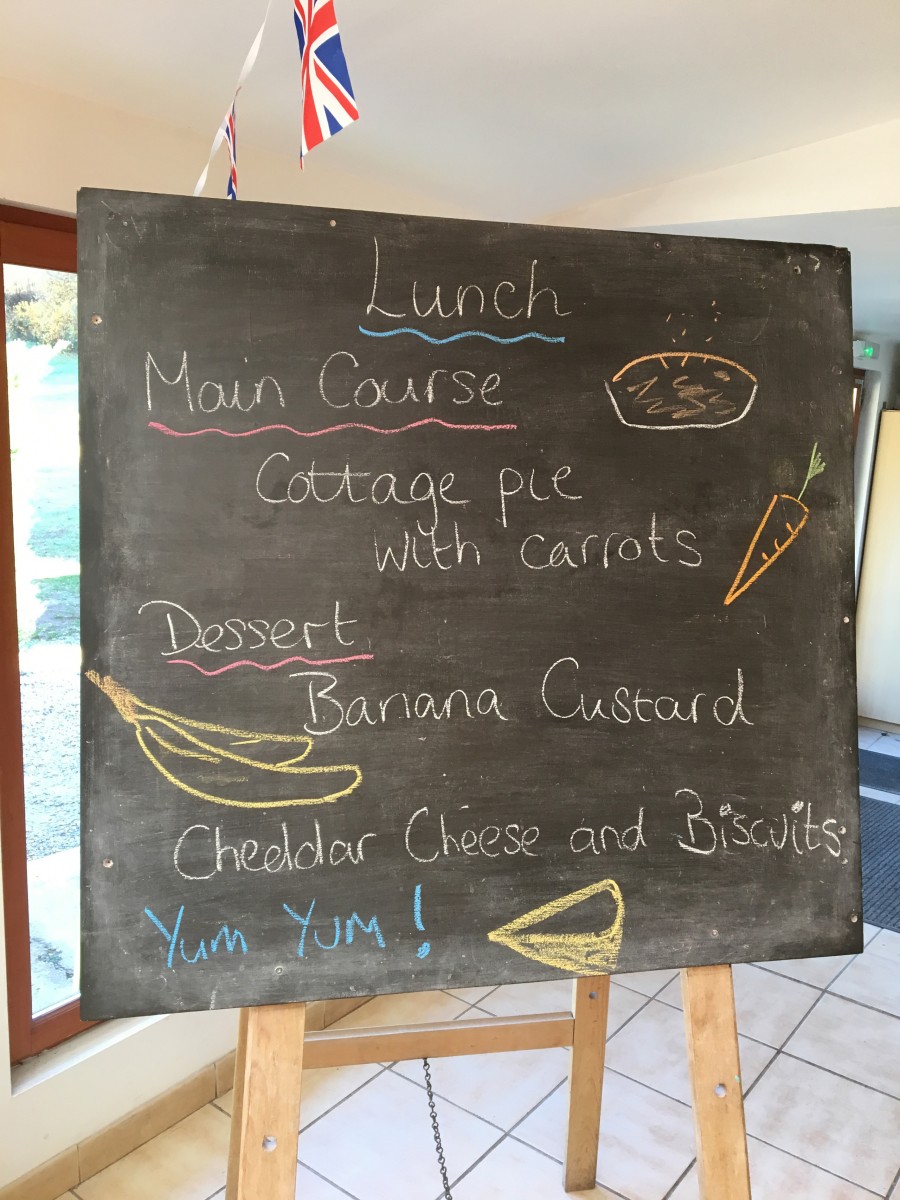 Lunch
Main Course
Cottage pie
with carrots
Dessert
Banana Custard
Cheddar Cheese and Biscuits
Yum Yum!